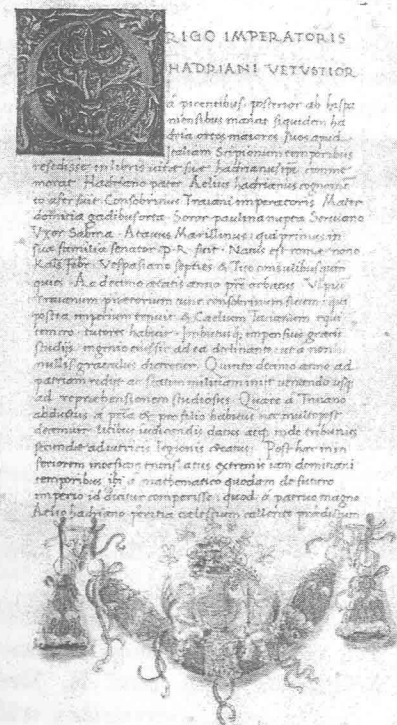 O RIGO IMPERATORIS
HADRIANI VETVSTIOR
a picentibus posterior ab hispa
niensibus manat siquidem ha
dria ortos maiores suos apud
Italiam Scipionum temporibus
resedisse in libris uitae suae hadrianus ipse comme
morat Hadriano pater Aelius hadrianus cognomen
to afer fuit Consobrinus Traiani imperatoris Mater
domitia gadibus orta Soror paulina nupta Seruiano
Vxor Sabina Atauus Marillinus qui primus in
sua familia senator P R fuit Natus est romae nono
Kal's febr Vespasiano septies & Tito consulibus quin
quies Ac decimo aetatis anno pre orbatus Vlpium
Traianum praetorium tunc consobrinum suum qui
postea imperium tenuit & Caelium Tatianum equi
tutores habuit Imbutusq impensius graecis
studiis ingenio eius sic ad ea declinante ut a non
nullis graeculus diceretur Quinto decimo anno ad
patriam rediit ac statim militiam iniit uenando usq
ad reprehensionem studiosus Quare a Traiano
abductus a pria & pro filio habitus nec multo post
decemuir litibus iudicandis datus atq inde tribunus
secundae adiutricis legionis creatus Post hac in in
feriorem moesiam translatus extremis iam domitiani
temporibus ibi a mathematico quodam de futuro
imperio id dicitur comperisse quod a patruo magno
Aelio hadriano peritia caelestium callente praedictum